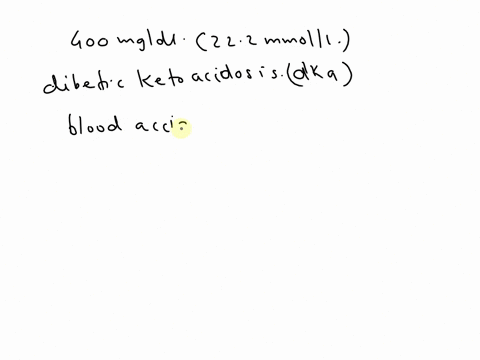 400 mg/dl. (22.2 mmol/l.)
dibetic ketoacidosis. (dka)
blood acci